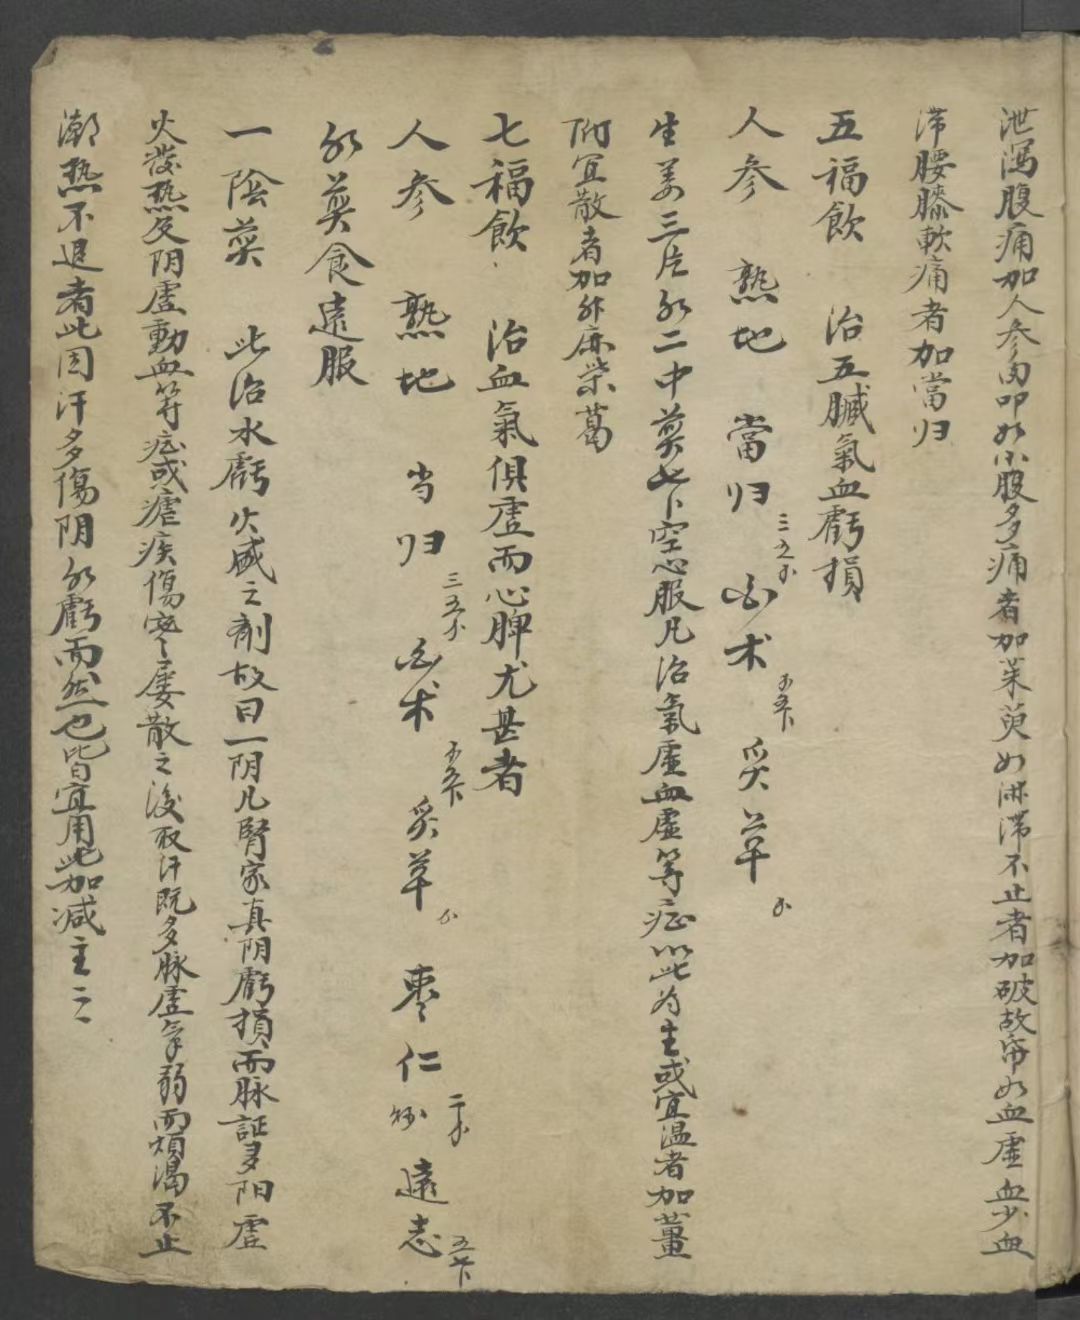 泄瀉腹痛加人参肉叩如小腹多痛者加茱萸如淋滞不止者加破故帋如血虛血少血
滞腰膝軟痛者加當归
五福飲 治五臟氣血虧損
人参 熟地 當归 三五小 白术 炙草
生姜三片水二中煎七下空心服凡治氣虛血虛等症以此为主或宜温者加薑
附宜散者加升麻柴葛
七福飲 治血氣俱虛而心脾尤甚者
人参 熟地 当归 三五小 白术 炙草 枣仁 二小 遠志
水煎食遠服
一陰煎 此治水虧火盛之剤故曰一阴凡腎家真阴虧損而脉証多阳虛
火發热及阴虛動血等症或瘧疾傷寒屡散之後取汗既多脉虛气弱而煩渴不止
潮热不退者此因汗多傷阴水虧而然也皆宜用此加减主之